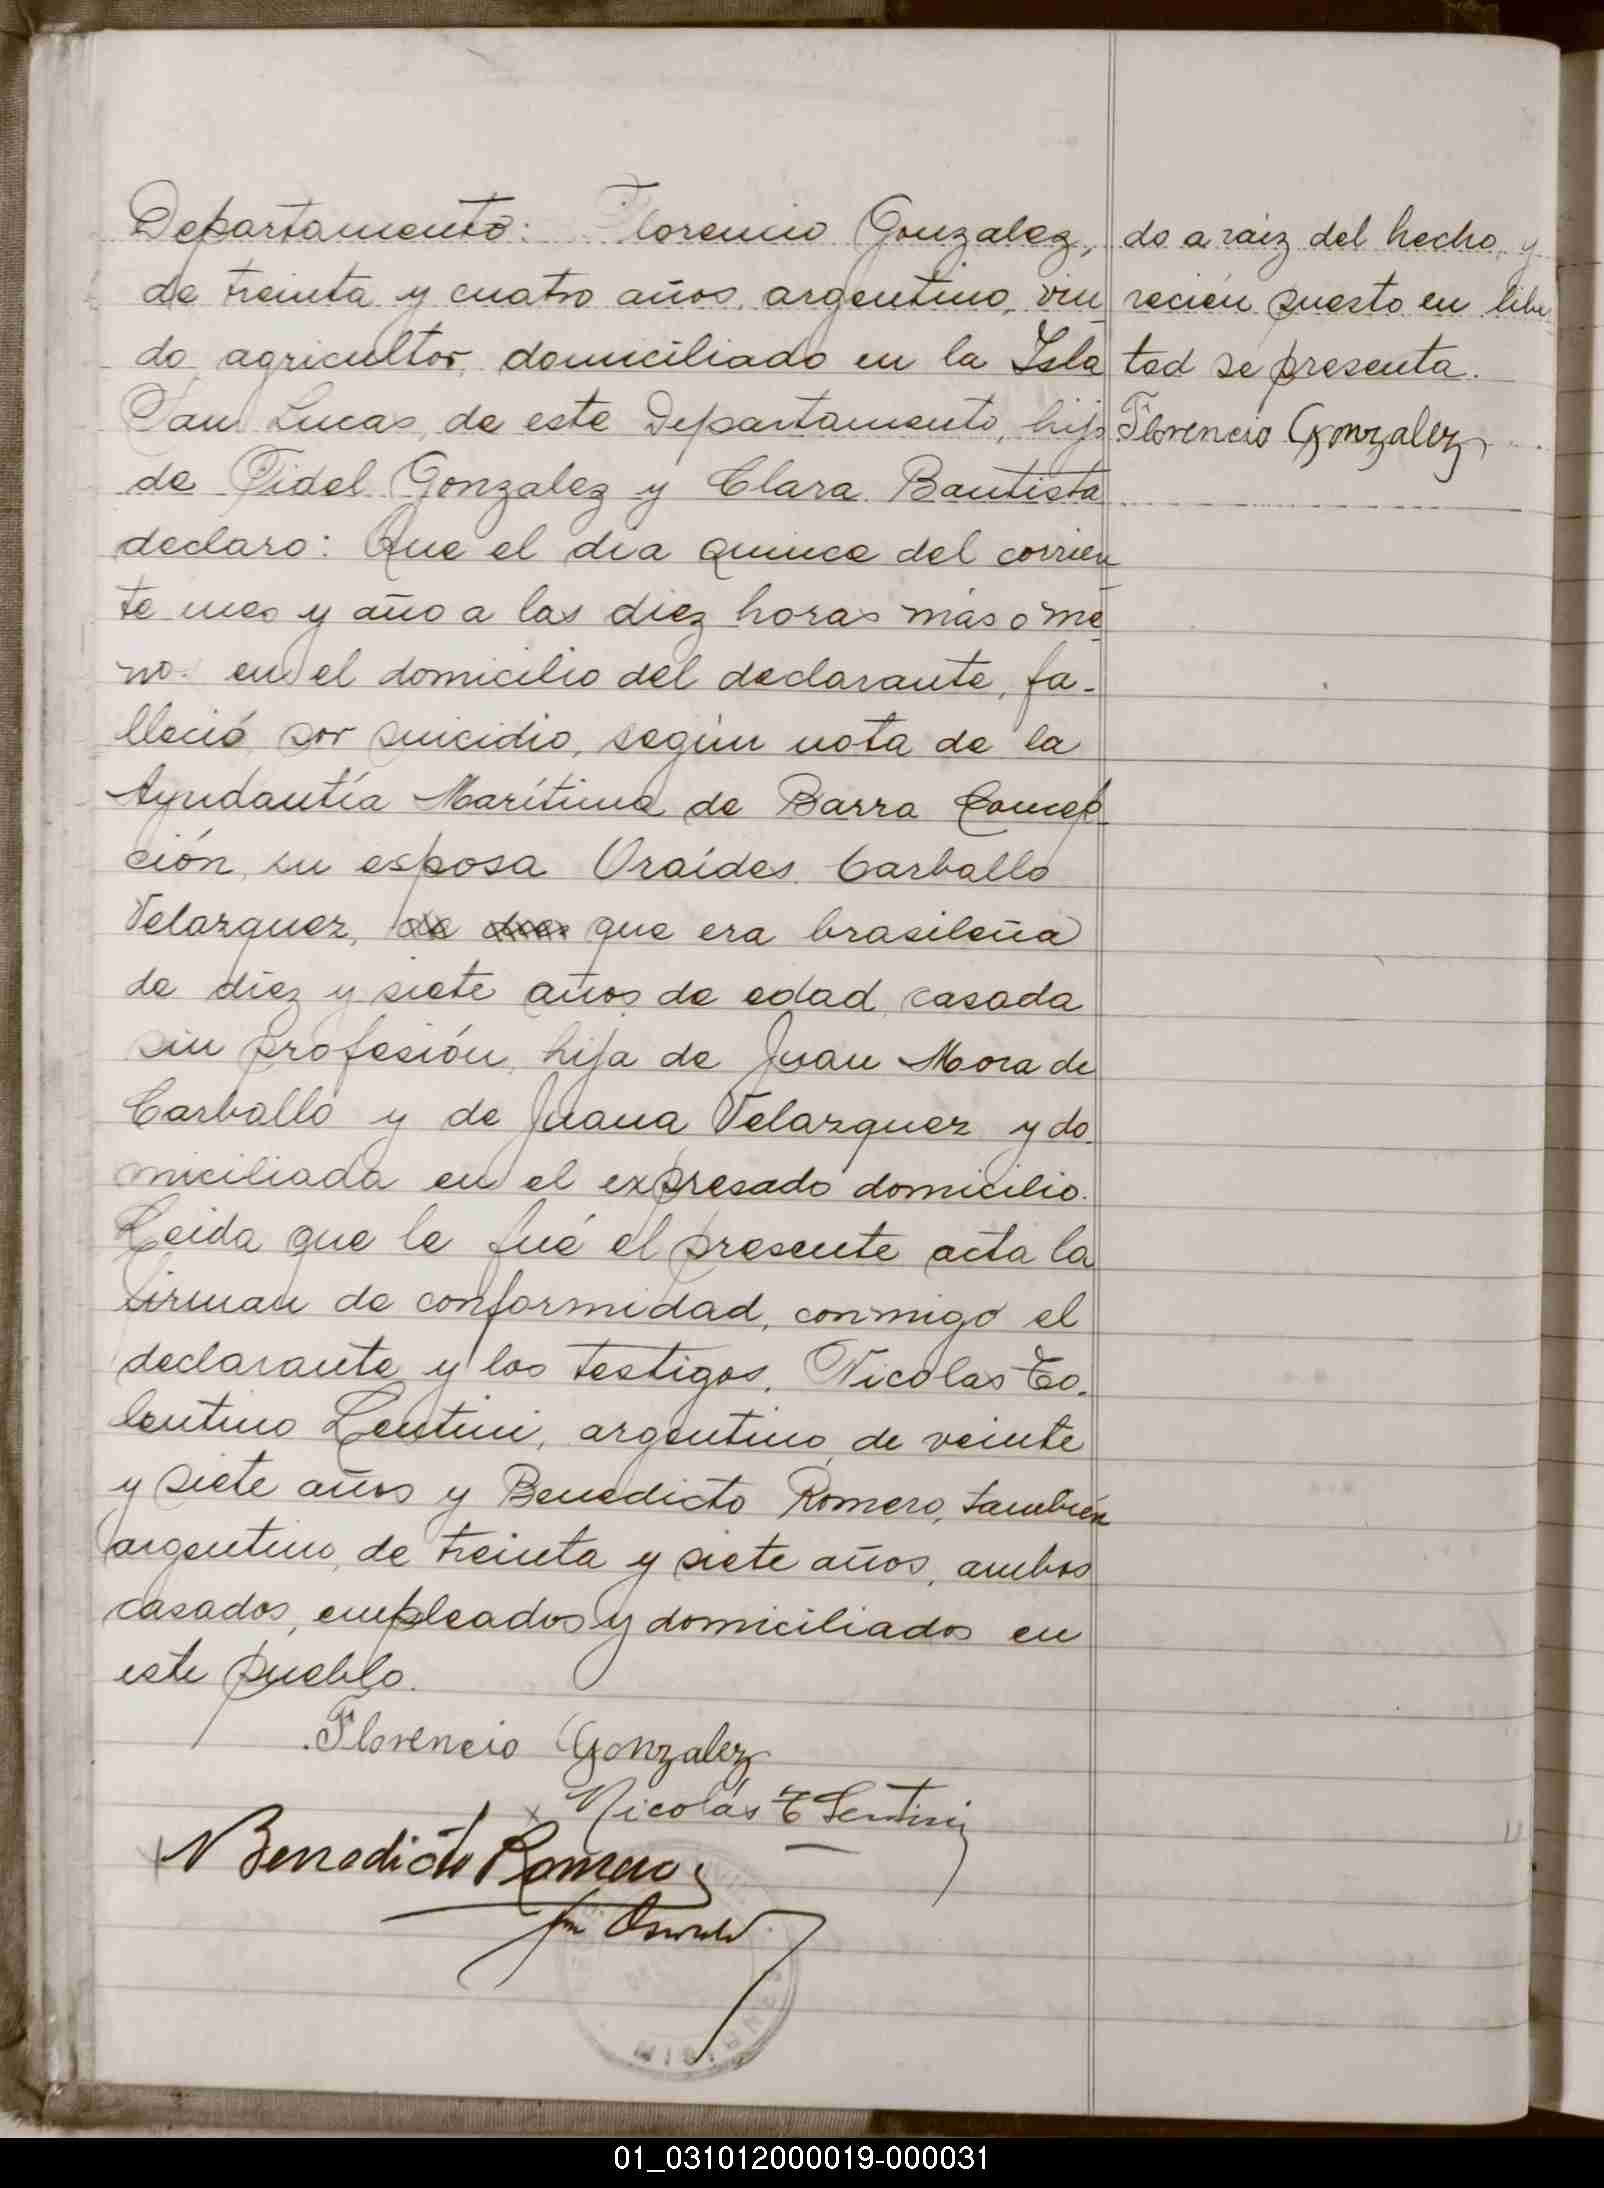 Departamento: Florencio Gonzalez,
de treinta y cuatro años, argentino, viu
do, agricultor, domiciliado en la Isla
San Lucas, de este Departamento, hijo
de Fidel Gonzalez y Clara Bautista
declaro: Que el dia quince del corrien
te mes y año a las diez horas más o me
nos en el domicilio del declarante, fa-
lleció por suicidio, según nota de la
Ayudantía Marítima de Barra Concep
ción, su esposa Oraídes Carballo
Velazquez, que era brasileña
de diez y siete años de edad, casada
sin profesión, hija de Juan Mora de
Carballo y de Juana Velazquez y do-
miciliada en el expresado domicilio.
Leida que le fué el presente acta la
firman de conformidad, conmigo el
declarante y los testigos, Nicolas To-
lentino Lentini, argentino, de veinte
y siete años y Benedicto Romero, también
argentino, de treinta y siete años, ambos
casados, empleados y domiciliados en
este pueblo.
Florencio Gonzalez
Nicolás T Lentini
Benedicto Romero
do a raiz del hecho, y
recién puesto en liber
tad se presenta.
Florencio Gonzalez
01_031012000019-000031